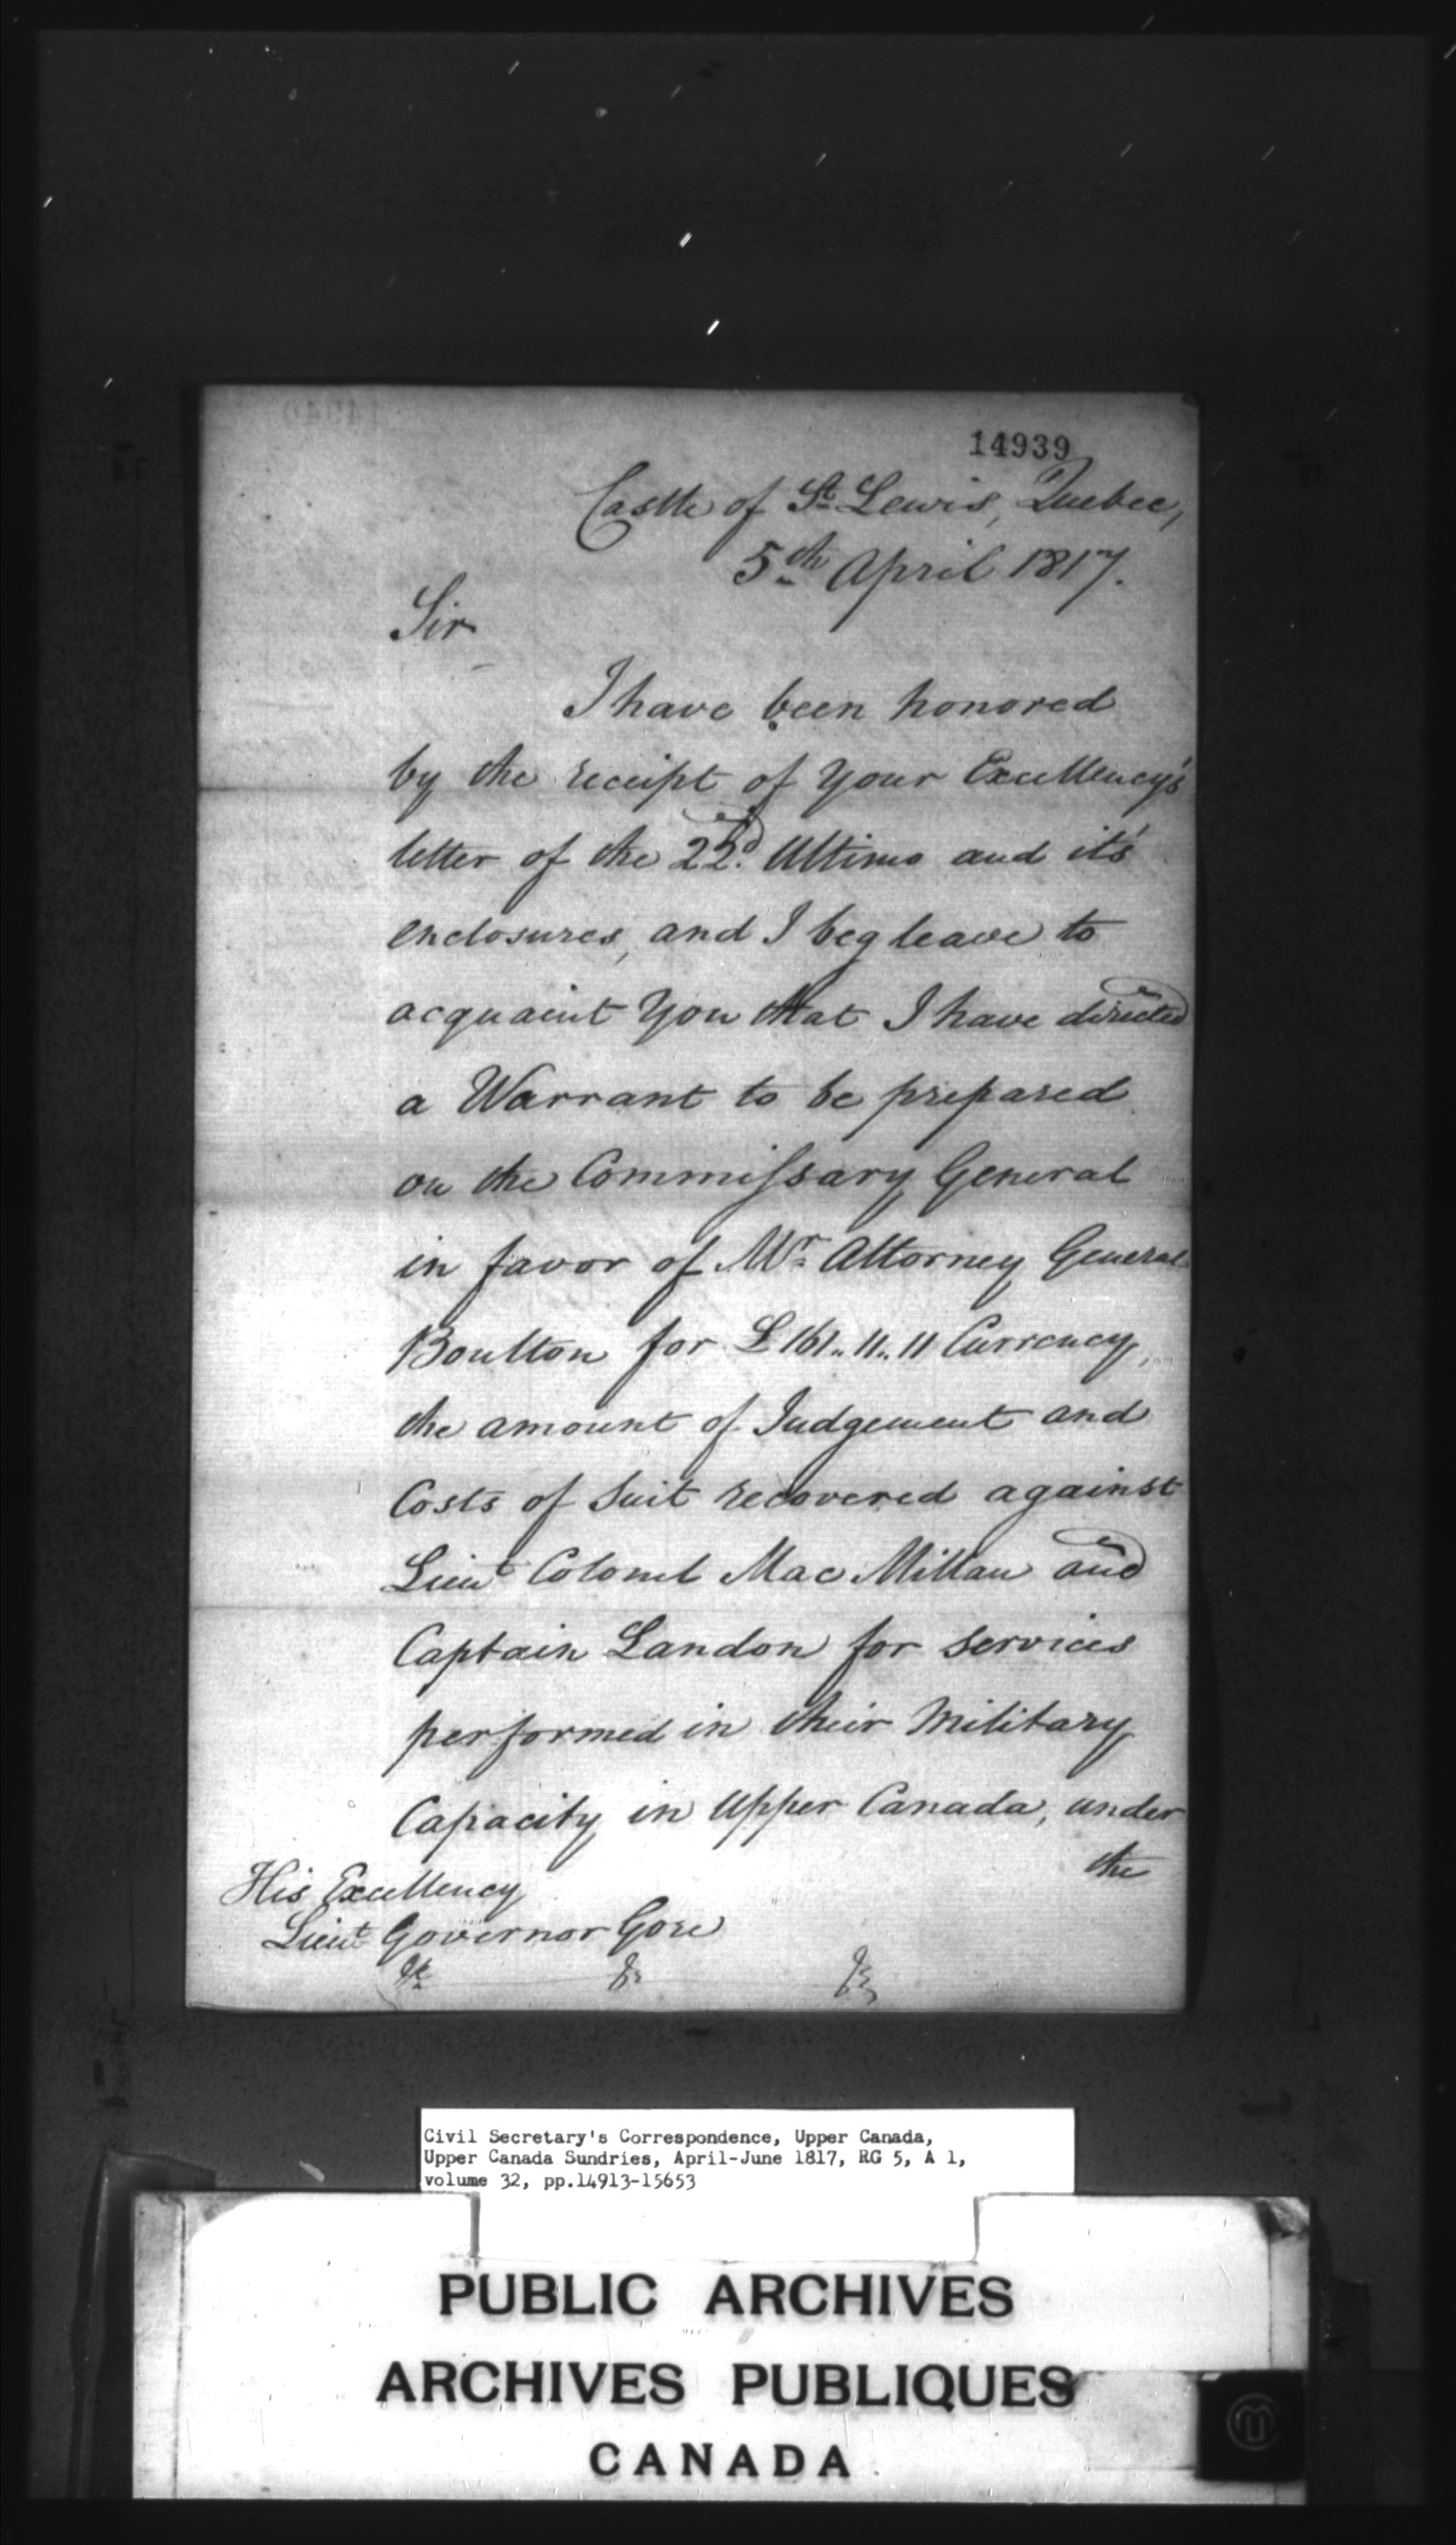 14939
Castle of St Lewis, Quebec,
5th April 1817.
Sir
I have been honored
by the receipt of Your Excellency's
letter of the 22d. Ultimo and it's
enclosures, and I beg leave to
acquaint You that I have directed
a Warrant to be prepared
on the Commissary General
in favor of Mr Attorney General
Boulton for £161..11..11 Currency,
the amount of Judgement and
Costs of Suit recovered against
Lieut Colonel Mac Millan and
Captain Landon for services
performed in their Military
Capacity in Upper Canada, under
the
His Excellency
Lieut Governor Gore
&c &c &c
Civil Secretary's Correspondence, Upper Canada,
Upper Canada Sundries, April-June 1817, RG 5, A 1,
volume 32, pp.14913-15653
PUBLIC ARCHIVES
ARCHIVES PUBLIQUES
CANADA